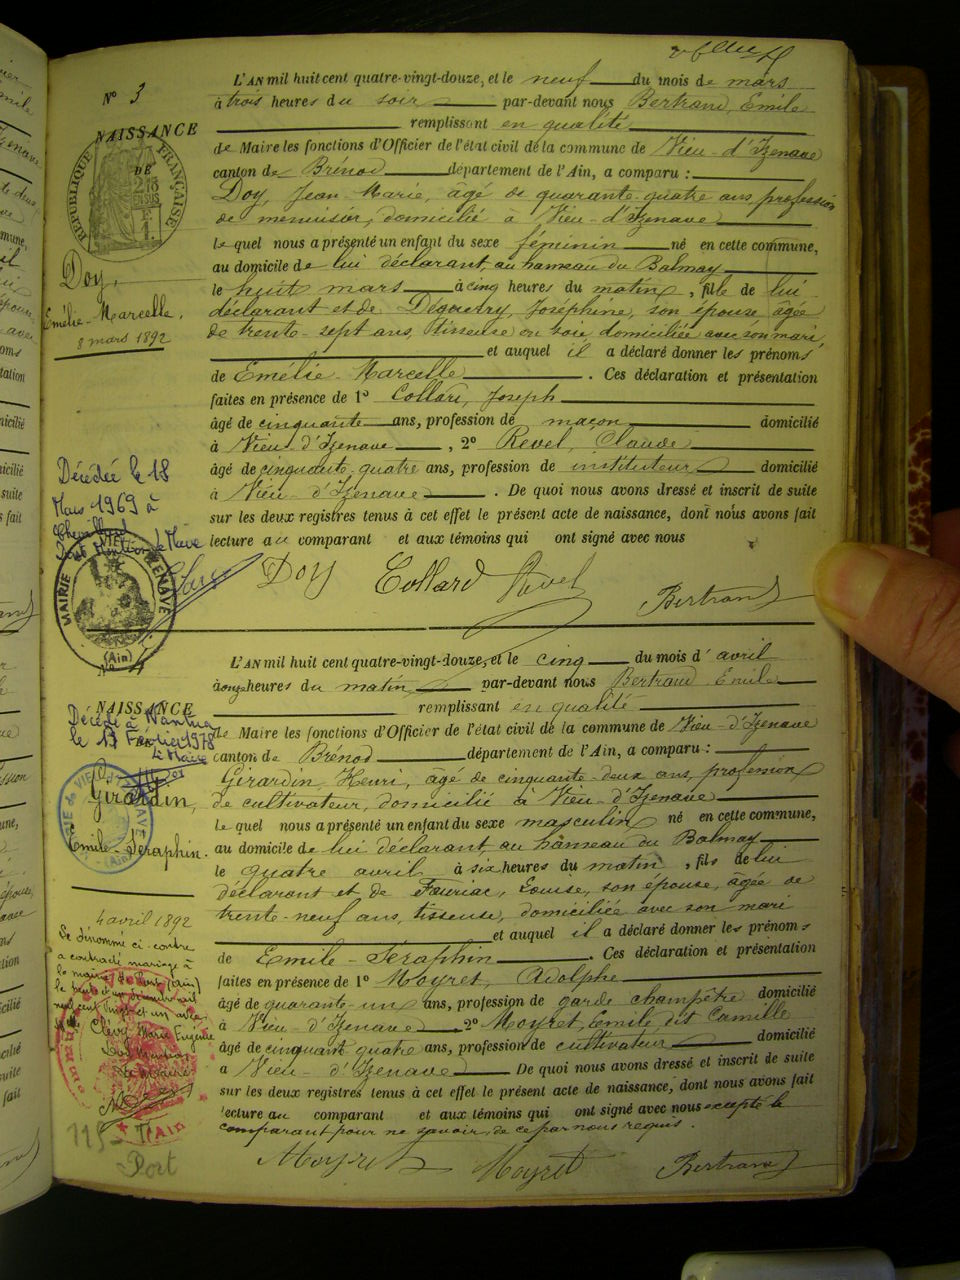 L'AN mil huit cent quatre-vingt-douze, et le neuf du mois de mars
N° 3
à trois heures du soir par-devant nous Bertrand, Emile
remplissant en qualité
NAISSANCE
de Maire les fonctions d'Officier de l'état civil de la commune de Vieu-d'Izenave
DE
RÉPUBLIQUE FRANÇAISE
canton de Brénod département de l'Ain, a comparu :
Doy, Jean-Marie, âgé de quarante-quatre ans, profession
de menuisier, domicilié à Vieu-d'Izenave
le quel nous a présenté un enfant du sexe féminin né en cette commune,
Doy,
au domicile de lui déclarant, au hameau du Balmay
le huit mars à cinq heures du matin, fille de lui
Emélie-Marcelle.
déclarant et de Déguerry, Joséphine, son épouse, âgée
8 mars 1892
de trente-sept ans, tisseuse en soie domiciliée avec son mari,
et auquel il a déclaré donner les prénoms
de Emélie-Marcelle. Ces déclaration et présentation
faites en présence de 1° Collard, Joseph
âgé de cinquante ans, profession de maçon domicilié
à Vieu-d'Izenave, 2° Revel, Claude
âgé de cinquante-quatre ans, profession de instituteur domicilié
à Vieu-d'Izenave. De quoi nous avons dressé et inscrit de suite
sur les deux registres tenus à cet effet le présent acte de naissance, dont nous avons fait
lecture au comparant et aux témoins qui ont signé avec nous
Décédée le 18
Mars 1969 à
Le Maire
MAIRIE VIEU D'IZENAVE
(Ain)
Doy Collard Revel
Bertrand
N° 4
L'AN mil huit cent quatre-vingt-douze, et le cinq du mois d'avril
à onze heures du matin par-devant nous Bertrand, Emile
remplissant en qualité
NAISSANCE
de Maire les fonctions d'Officier de l'état civil de la commune de Vieu-d'Izenave
Décédé à Nantua
le 13 Février 1978
Le Maire
canton de Brénod département de l'Ain, a comparu :
Girardin, Henri, âgé de cinquante-deux ans, profession
Girardin,
de cultivateur, domicilié à Vieu-d'Izenave
le quel nous a présenté un enfant du sexe masculin né en cette commune,
Emile-Séraphin.
au domicile de lui déclarant au hameau du Balmay
le quatre avril à six heures du matin, fils de lui
déclarant et de Fauriac, Louise, son épouse, âgée de
trente-neuf ans, tisseuse, domiciliée avec son mari
4 avril 1892
et auquel il a déclaré donner les prénoms
de Emile-Séraphin. Ces déclaration et présentation
faites en présence de 1° Moyret, Adolphe
âgé de quarante-un ans, profession de garde champêtre domicilié
à Vieu-d'Izenave, 2° Moyret, Emile dit Camille
âgé de cinquante quatre ans, profession de cultivateur domicilié
à Vieu-d'Izenave. De quoi nous avons dressé et inscrit de suite
sur les deux registres tenus à cet effet le présent acte de naissance, dont nous avons fait
lecture au comparant et aux témoins qui ont signé avec nous excepté le
comparant pour ne savoir, de ce par nous requis.
Le dénommé ci-contre
a contracté mariage à
la mairie de Port (Ain)
mil neuf cent vingt et un avec
Marie Eugénie
Ain
Port
Moyret Moyret Bertrand